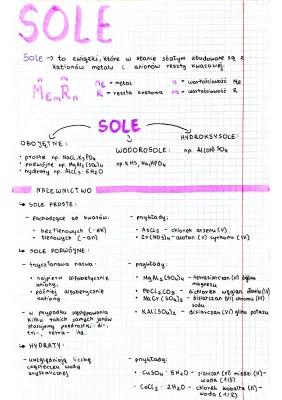 SOLE
Sole → to związki, które w stanie stałym zbudowane są z
kationów metalu i anionów reszty kwasowej.
n m
MemRn
Me = metal n = wartościowość Me
R = reszta kwasowa m = wartościowość R
SOLE
OBOJĘTNE:
• proste np. NaCl, K3PO4
• podwójne np. MgAl2(SO4)4
• hydraty np. AlCl3 · 6H2O
WODOROSOLE:
np. KHS, Na2HPO4
HYDROKSYSOLE:
NAZEWNICTWO
↳ SOLE PROSTE:
- pochodzące od kwasów:
• beztlenowych (-ek)
• tlenowych (-an)
- przykłady:
• AsCl5 - chlorek arsenu (V)
• Zr(NO3)4 - azotan (V) cyrkonu (IV)
↳ SOLE PODWÓJNE:
- trzyczłonowa nazwa:
• najpierw alfabetycznie
aniony,
• później alfabetycznie
kationy
- w przypadku występowania
kilku takich samych jonów
stosujemy przedrostki: di-,
tri-, tetra- itd.
- przykłady:
• MgAl2(SO4)4 - tetrasiarczan (VI) glinu
magnezu
• PbCl2CO3 - dichlorek węglan ołowiu (IV)
• NaCr(SO4)2 - disiarczan (VI) chromu (III)
sodu
• KAl(SO4)2 - disiarczan (VI) glinu potasu
↳ HYDRATY:
- uwzględniają liczbę
cząsteczek wody
krystalicznej
- przykłady:
• CuSO4 · 5H2O - siarczan (VI) miedzi (II) -
woda (1/5)
• CoCl2 · 2H2O - chlorek kobaltu (II) -
woda (1/2)